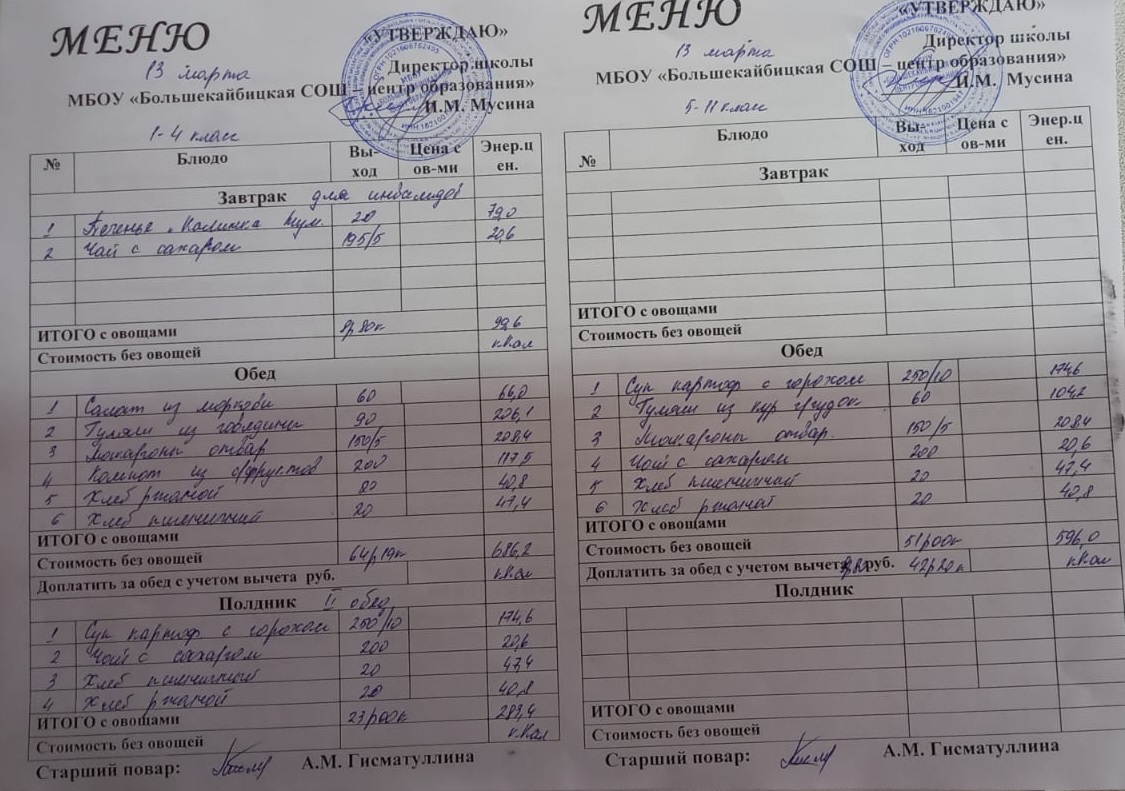 МЕНЮ
«УТВЕРЖДАЮ»
13 марта
Директор школы
МБОУ «Большекайбицкая СОШ – центр образования»
И.М. Мусина
1-4 класс
№ Блюдо Вы-ход Цена с ов-ми Энер.цен.
Завтрак для инвалидов
1 Печенье 20 79,0
2 Чай с сахаром 195/5 20,6
ИТОГО с овощами 8р 80к 99,6
Стоимость без овощей кКал
Обед
1 Салат из моркови 60 66,0
2 Гуляш из говядины 90 206,1
3 Макароны отвар 150/5 208,4
4 Компот из с/фруктов 200 117,5
5 Хлеб ржаной 20 40,8
6 Хлеб пшеничный 20 47,4
ИТОГО с овощами
Стоимость без овощей 64р19к 686,2
Доплатить за обед с учетом вычета руб. кКал
Полдник II обед
1 Суп картоф с горохом 250/10 174,6
2 Чай с сахаром 200 20,6
3 Хлеб пшеничный 20 47,4
4 Хлеб ржаной 20 40,8
ИТОГО с овощами 23р00к 283,4
Стоимость без овощей кКал
Старший повар: А.М. Гисматуллина
МЕНЮ
«УТВЕРЖДАЮ»
13 марта
Директор школы
МБОУ «Большекайбицкая СОШ – центр образования»
И.М. Мусина
5-11 класс
№ Блюдо Вы-ход Цена с ов-ми Энер.цен.
Завтрак
ИТОГО с овощами
Стоимость без овощей
Обед
1 Суп картоф с горохом 250/10 174,6
2 Гуляш из кур грудок 60 104,2
3 Макароны отвар. 150/5 208,4
4 Чай с сахаром 200 20,6
5 Хлеб пшеничный 20 47,4
6 Хлеб ржаной 20 40,8
ИТОГО с овощами
Стоимость без овощей 51р00к 596,0
Доплатить за обед с учетом вычета руб. 42р20к кКал
Полдник
ИТОГО с овощами
Стоимость без овощей
Старший повар: А.М. Гисматуллина